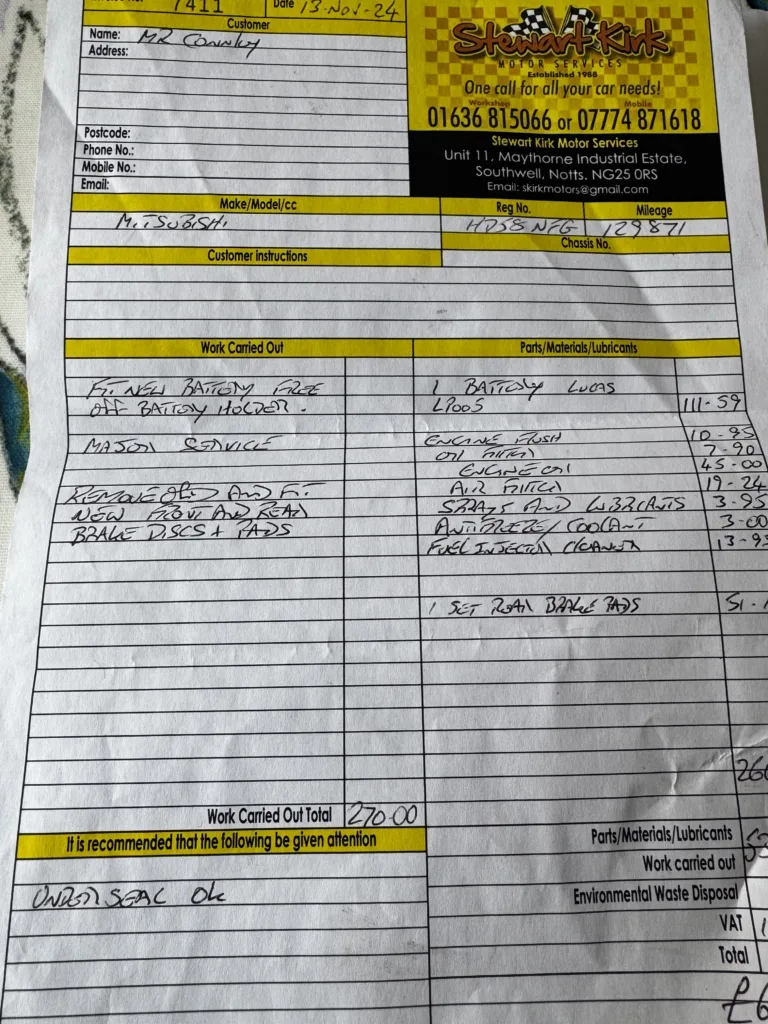 7411
Date 13-Nov-24
Customer
Name: MR CONNLY
Address:
Postcode:
Phone No.:
Mobile No.:
Email:
Stewart Kirk
MOTOR SERVICES
Established 1988
One call for all your car needs!
Workshop Mobile
01636 815066 or 07774 871618
Stewart Kirk Motor Services
Unit 11, Maythorne Industrial Estate,
Southwell, Notts. NG25 0RS
Email: skirkmotors@gmail.com
Make/Model/cc Reg No. Mileage
MITSUBISHI HD58 NFG 129871
Chassis No.
Customer Instructions
Work Carried Out Parts/Materials/Lubricants
FIT NEW BATTERY FREE 1 BATTERY LUCAS
OFF BATTERY HOLDER. LP005 111-59
MAJOR SERVICE ENGINE FLUSH 10-95
OIL FILTER 7-90
ENGINE OIL 45-00
REMOVE OLD AND FIT AIR FILTER 19-24
NEW FRONT AND REAR SPRAYS AND LUBRICANTS 3-95
BRAKE DISCS + PADS ANTIFREEZE/COOLANT 3-00
FUEL INJECTOR CLEANER 13-95
1 SET REAR BRAKE PADS 51-
266
Work Carried Out Total 270-00
It is recommended that the following be given attention
Parts/Materials/Lubricants
Work carried out
UNDERSEAL OK
Environmental Waste Disposal
VAT 1
Total
£6